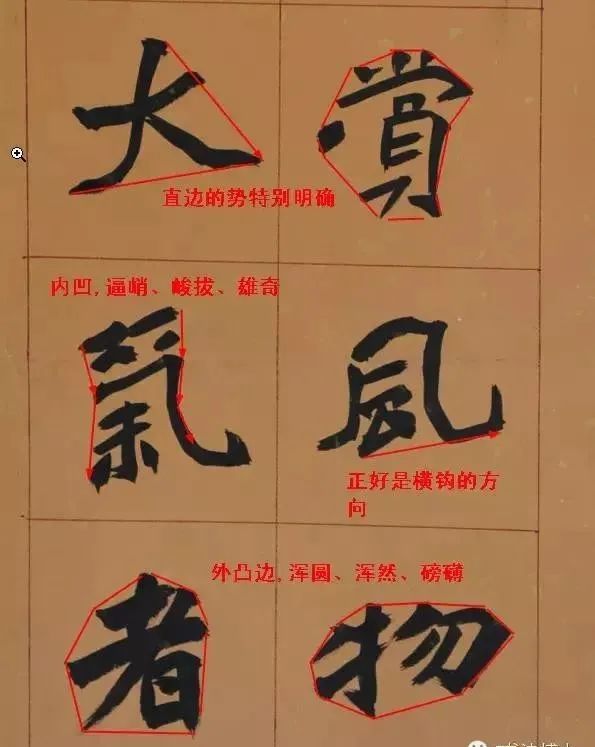 大 賞
直边的势特别明确
内凹,逼峭、峻拔、雄奇
氣 風
正好是横钩的方
向
外凸边,浑圆、浑然、磅礴
者 物